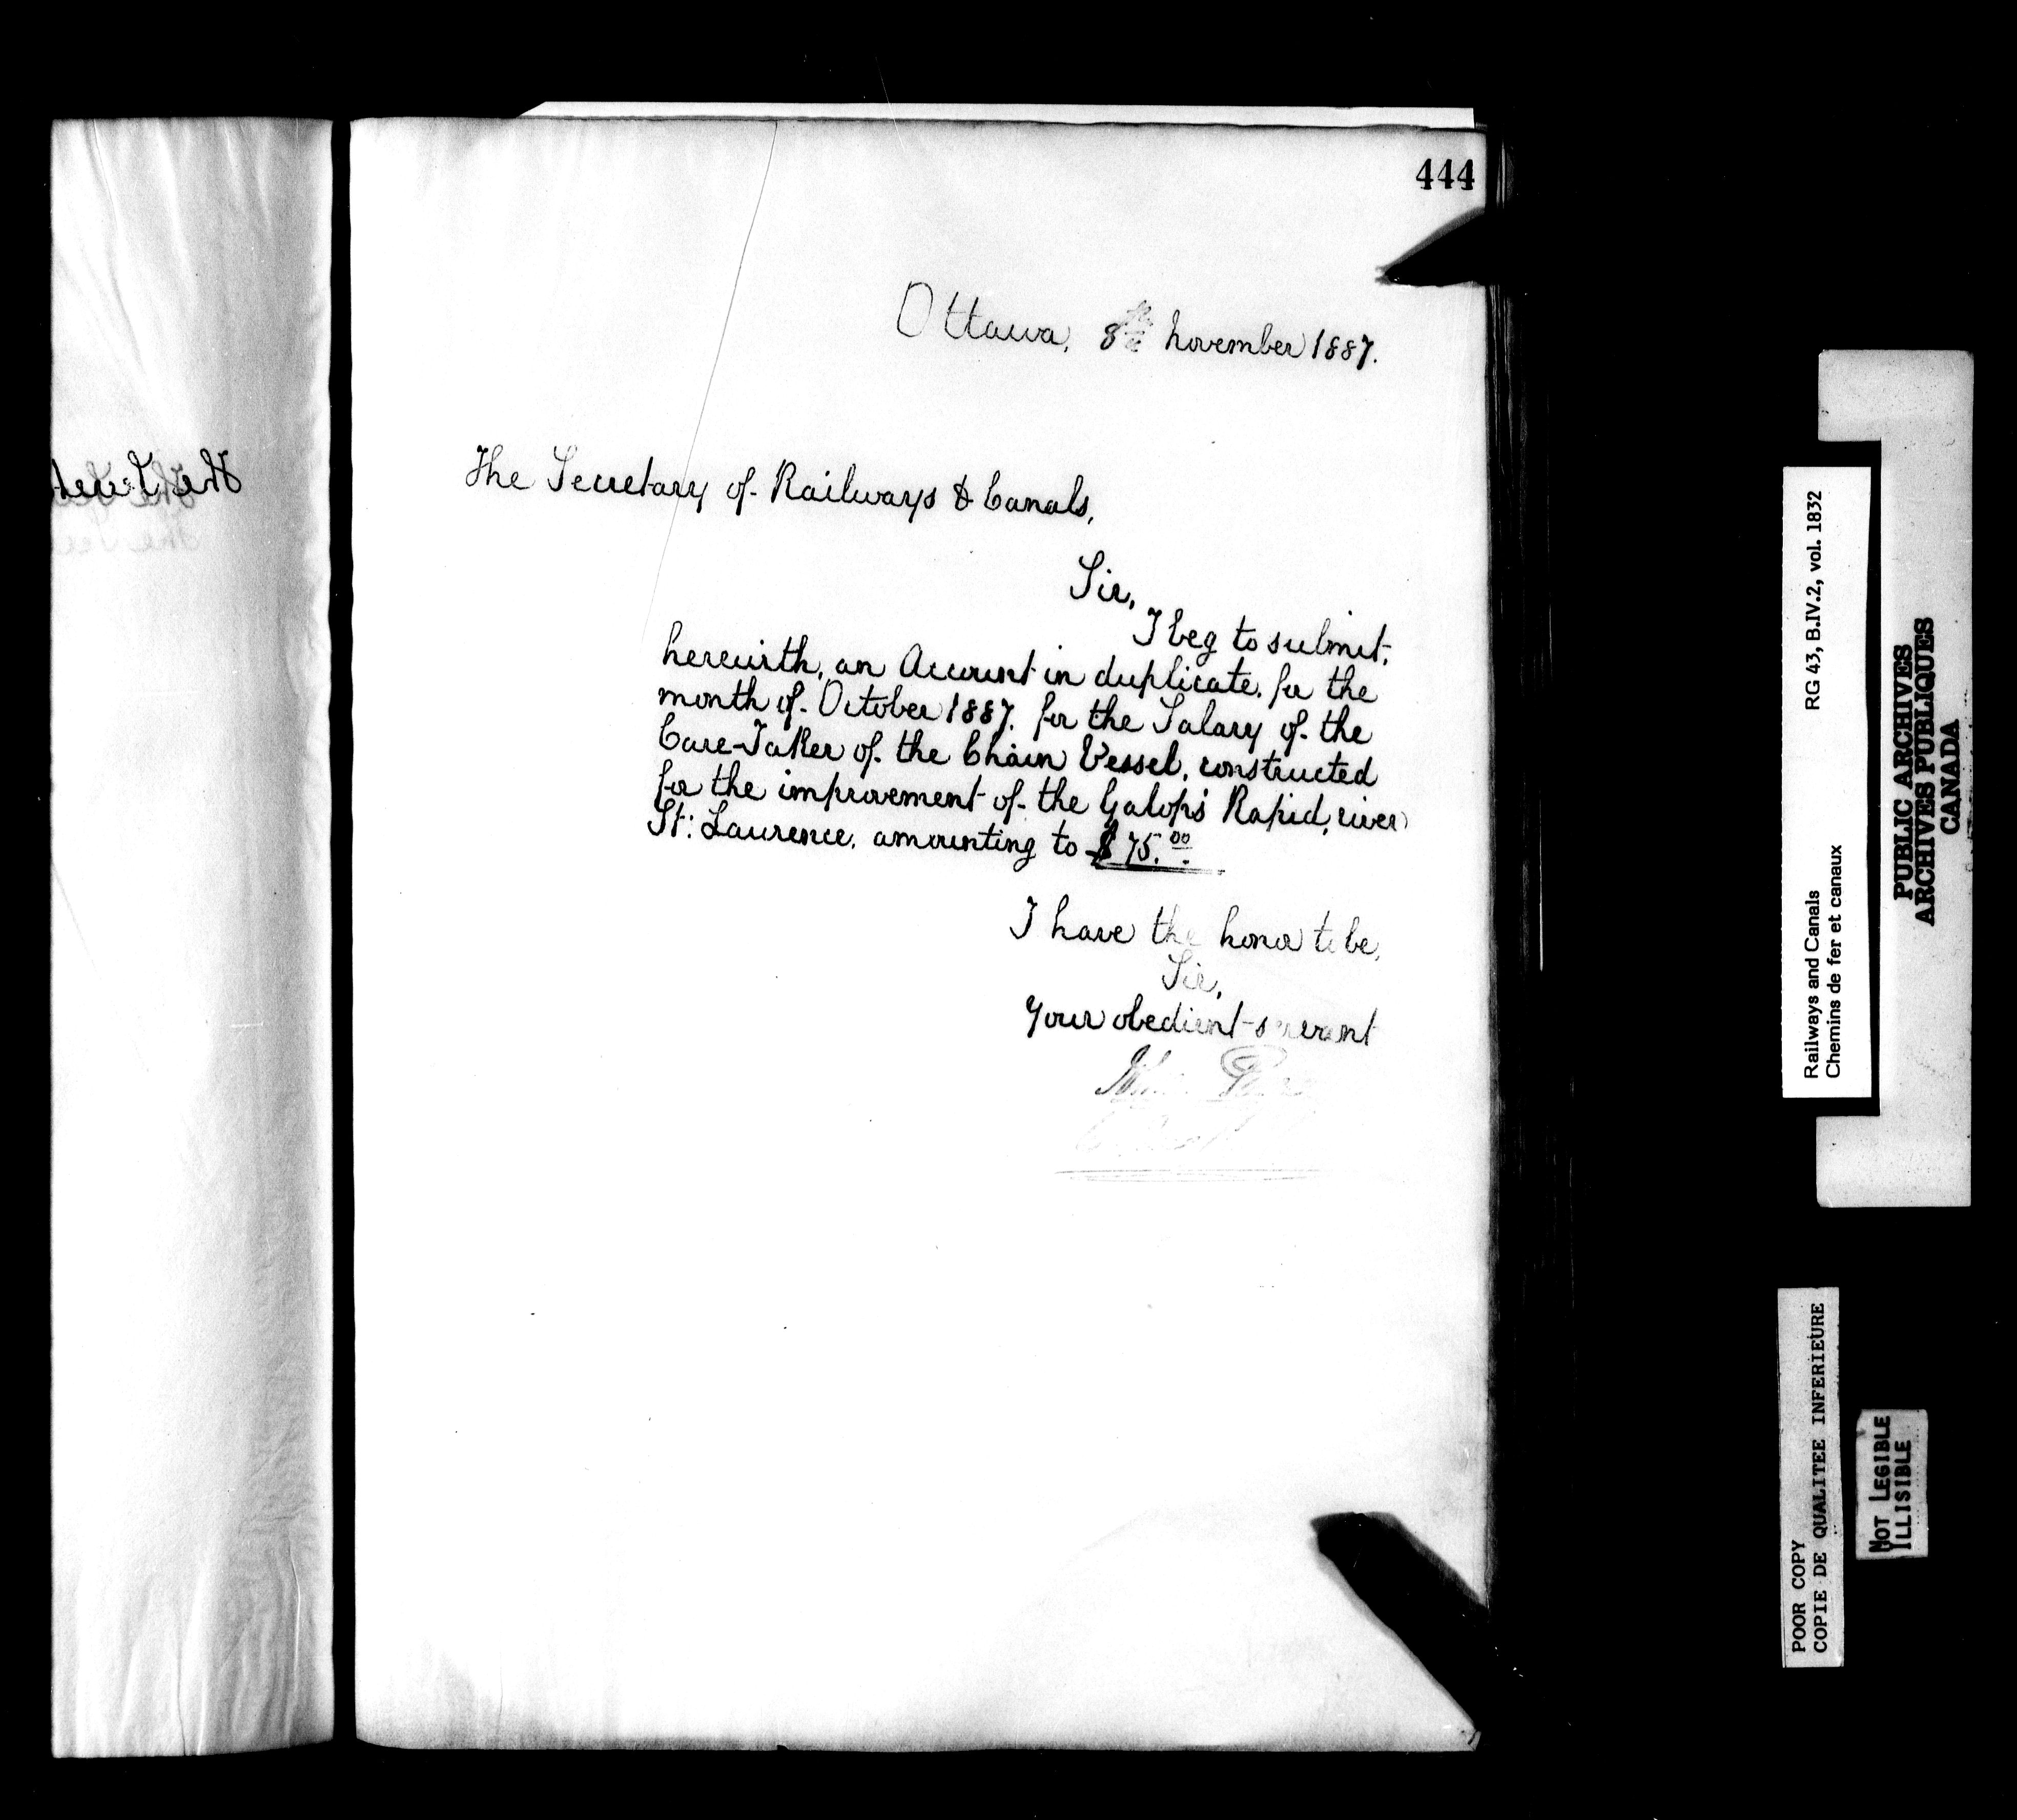 444
Ottawa, 8th November 1887.
The Secretary of Railways & Canals,
Sir,
I beg to submit,
herewith, an Account in duplicate, for the
month of October 1887, for the Salary of the
Care-Taker of the Chain Vessel, constructed
for the improvement of the Galops Rapid, river
St: Laurence, amounting to $75.00
I have the honor to be,
Sir,
Your obedient servant
Railways and Canals RG 43, B.IV.2, vol. 1832
Chemins de fer et canaux
PUBLIC ARCHIVES
ARCHIVES PUBLIQUES
CANADA
POOR COPY
COPIE DE QUALITEE INFERIEURE
NOT LEGIBLE
ILLISIBLE